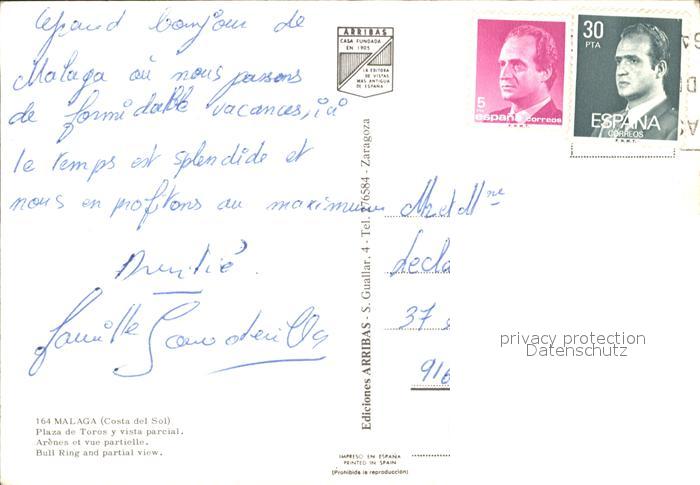 Grand bonjour de
Malaga où nous passons
de formidable vacances, ici
le temps est splendide et
nous en profitons au maximum
Amitié.
famille
164 MALAGA (Costa del Sol)
Plaza de Toros y vista parcial.
Arènes et vue partielle.
Bull Ring and partial view.
ARRIBAS
CASA FUNDADA
EN 1905
LA EDITORA
DE VISTAS
MAS ANTIGUA
DE ESPAÑA
Ediciones ARRIBAS - S. Guallar, 4 - Tel. 276584 - Zaragoza
IMPRESO EN ESPAÑA
PRINTED IN SPAIN
(Prohibida la reproducción)
5
PTA
españa correos
F.N.M.T.
30
PTA
ESPAÑA
CORREOS
F.N.M.T.
M et Mme
Lecla
37
916
privacy protection
Datenschutz